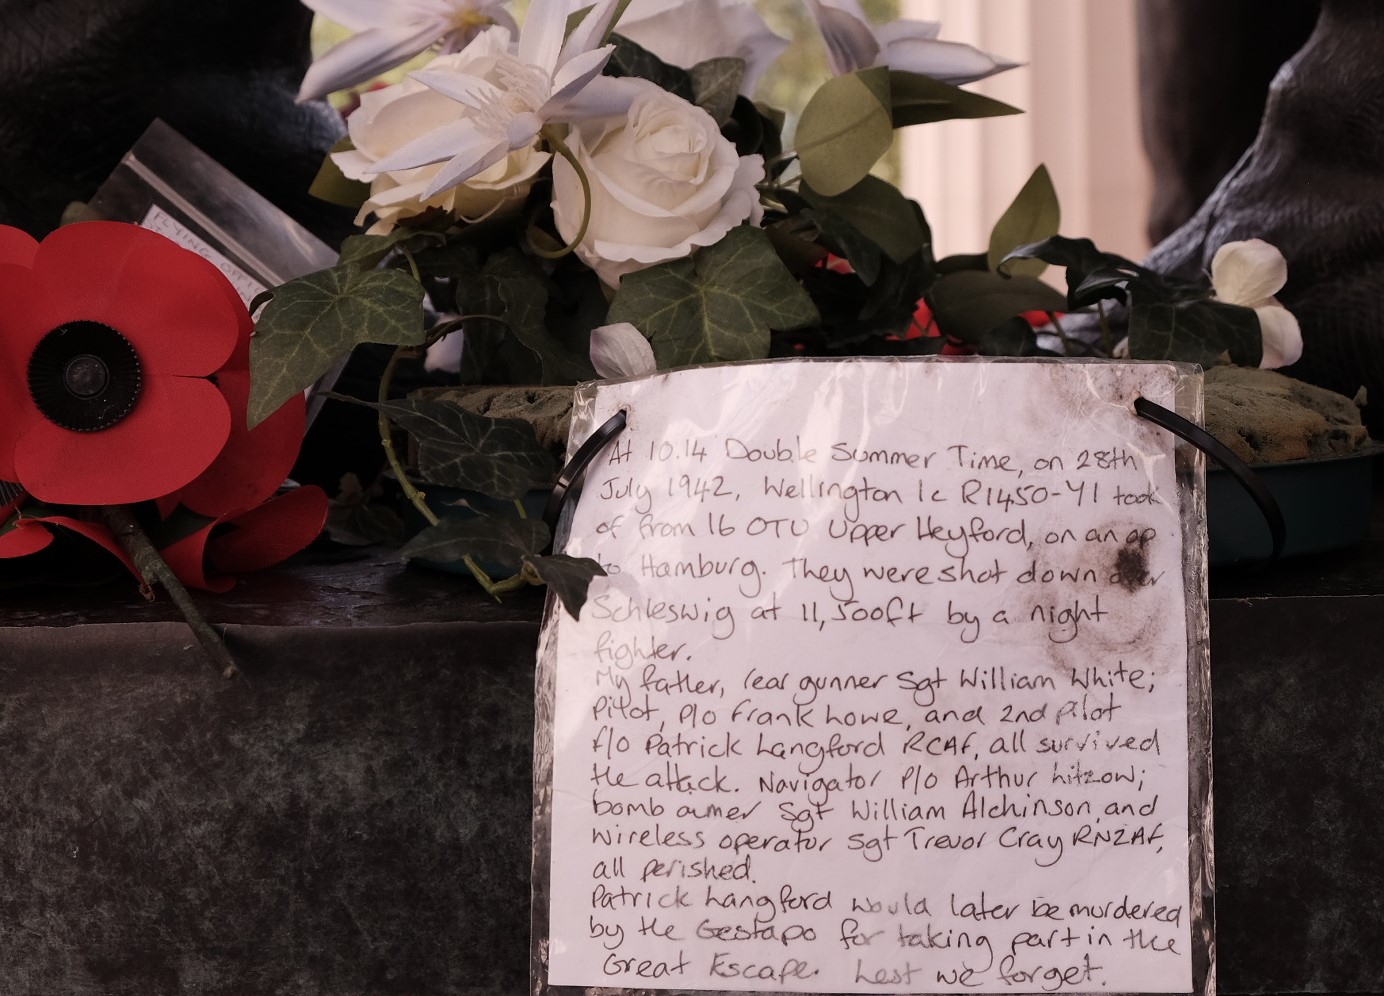 FLYING OFFI
At 10.14 Double Summer Time, on 28th
July 1942, Wellington 1c R1450-Y1 took
of from 16 OTU Upper Heyford, on an op
to Hamburg. They were shot down over
Schleswig at 11,500ft by a night
fighter.
My father, rear gunner Sgt William White;
Pilot, P/o Frank Lowe, and 2nd pilot
F/o Patrick Langford RCAF, all survived
the attack. Navigator P/o Arthur Litzow;
bomb aimer Sgt William Alchinson, and
wireless operator Sgt Trevor Cray RNZAF,
all perished.
Patrick Langford would later be murdered
by the Gestapo for taking part in the
Great Escape. Lest we forget.